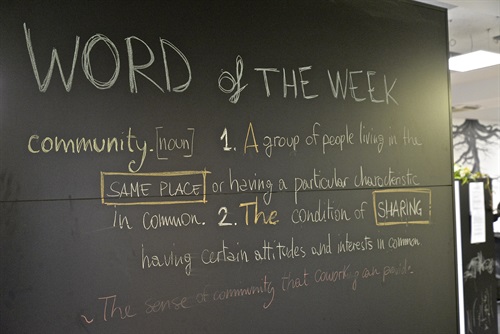 WORD of THE WEEK
community. [noun] 1. A group of people living in the
SAME PLACE or having a particular characteristic
in common. 2. The condition of SHARING
having certain attitudes and interests in common
~ The sense of community that coworking can provide.